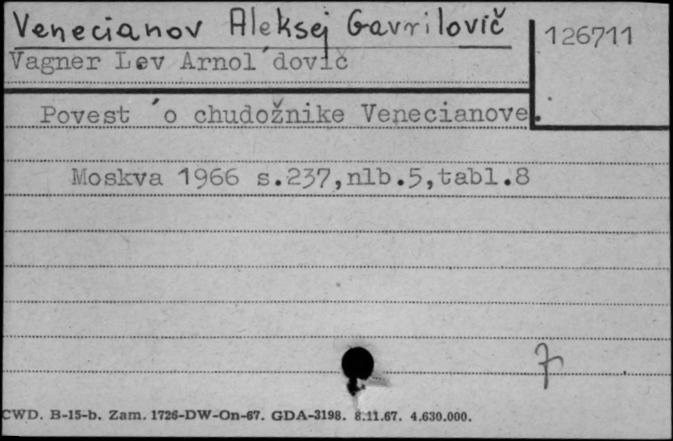 Venecianov Aleksej Gavrilovič
126711
Vagner Lev Arnol´dovič
Povest´o chudožnike Venecianove.
Moskva 1966 s.237,nlb.5,tabl.8
CWD. B-15-b. Zam. 1726-DW-On-67. GDA-3198. 8.11.67. 4.630.000.